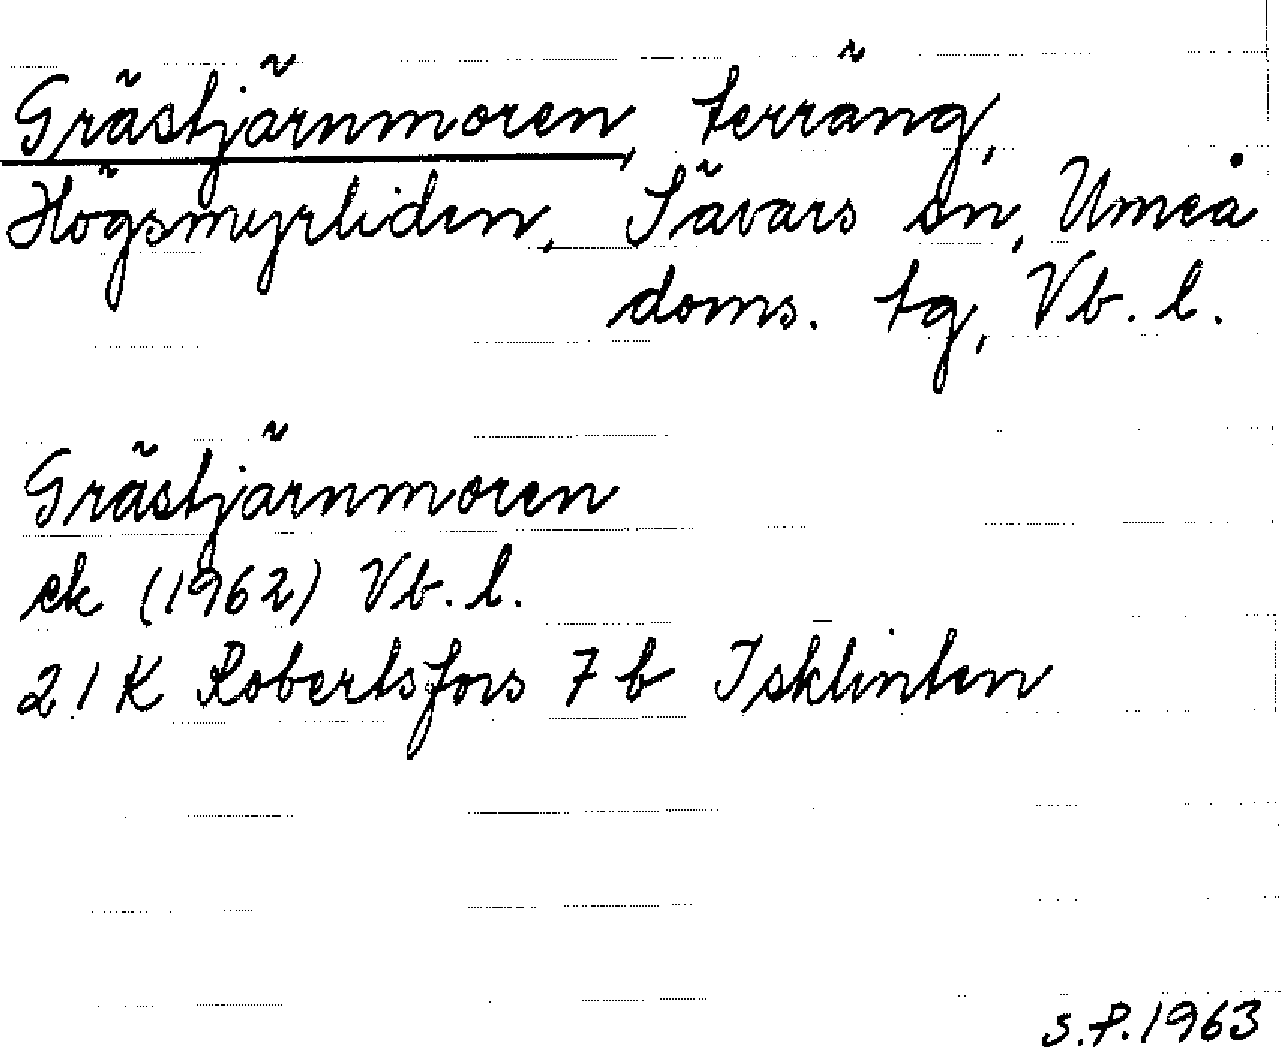 Grästjärnmoren, terräng,
Högsmyrliden, Sävars sn, Umeå
doms. tg, Vb. l.
Grästjärnmoren
ek (1962) Vb. l.
21K Robertsfors 7 b Isklinten
S.P.1963